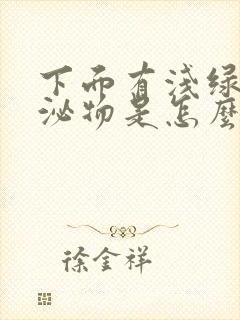 下而有浅绿
泌物是怎麼
徐金祥